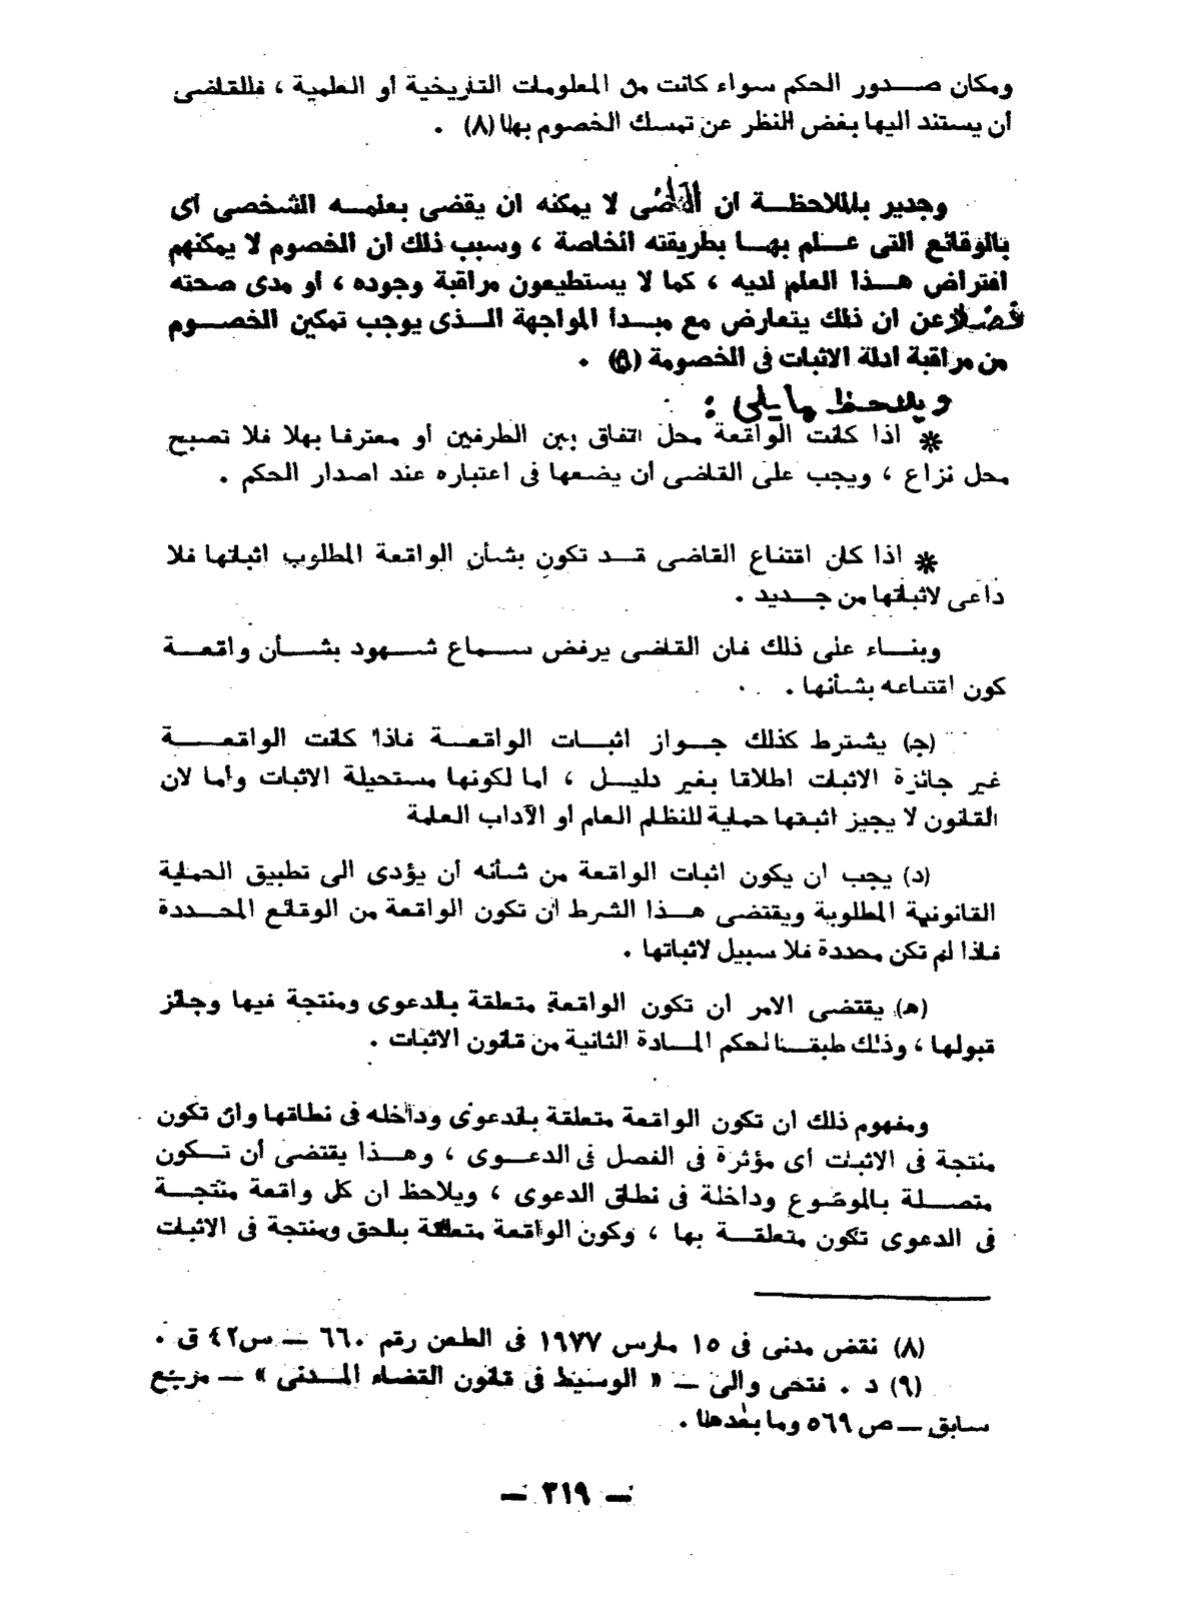 ومكان صدور الحكم سواء كانت من المعلومات التاريخية أو العلمية ، فللقاضى
أن يستند اليها بغض النظر عن تمسك الخصوم بها (٨) .
وجدير بالملاحظة ان القاضى لا يمكنه ان يقضى بعلمه الشخصى اى
بالوقائع التى علم بها بطريقته الخاصة ، وسبب ذلك ان الخصوم لا يمكنهم
افتراض هذا العلم لديه ، كما لا يستطيعون مراقبة وجوده ، أو مدى صحته
فضلا عن ان ذلك يتعارض مع مبدا المواجهة الذى يوجب تمكين الخصوم
من مراقبة ادلة الاثبات فى الخصومة (٩) .
ويلاحظ مايلى :
* اذا كانت الواقعة محل اتفاق بين الطرفين أو معترفا بها فلا تصبح
محل نزاع ، ويجب على القاضى أن يضعها فى اعتباره عند اصدار الحكم .
* اذا كان اقتناع القاضى قد تكون بشأن الواقعة المطلوب اثباتها فلا
داعى لاثباتها من جديد .
وبناء على ذلك فان القاضى يرفض سماع شهود بشأن واقعة
كون اقتناعه بشأنها .
(ج) يشترط كذلك جواز اثبات الواقعة فاذا كانت الواقعة
غير جائزة الاثبات اطلاقا بغير دليل ، أما لكونها مستحيلة الاثبات وأما لان
القانون لا يجيز اثبتها حماية للنظام العام أو الآداب العامة
(د) يجب ان يكون اثبات الواقعة من شأنه أن يؤدى الى تطبيق الحماية
القانونية المطلوبة ويقتضى هذا الشرط أن تكون الواقعة من الوقائع المحددة
فاذا لم تكن محددة فلا سبيل لاثباتها .
(ه) يقتضى الامر ان تكون الواقعة متعلقة بالدعوى ومنتجة فيها وجائز
قبولها ، وذلك طبقا لحكم المادة الثانية من قانون الاثبات .
ومفهوم ذلك ان تكون الواقعة متعلقة بالدعوى وداخله فى نطاقها وان تكون
منتجة فى الاثبات أى مؤثرة فى الفصل فى الدعوى ، وهذا يقتضى أن تكون
متصلة بالموضوع وداخلة فى نطاق الدعوى ، ويلاحظ ان كل واقعة منتجة
فى الدعوى تكون متعلقة بها ، وكون الواقعة متعلقة بالحق ومنتجة فى الاثبات
(٨) نقض مدنى فى ١٥ مارس ١٩٧٧ فى الطعن رقم ٦٦٠ — س٤٢ ق .
(٩) د . فتحى والى — « الوسيط فى قانون القضاء المدنى » — مرجع
سابق — ص ٥٦٩ وما بعدها .
— ٣١٩ —